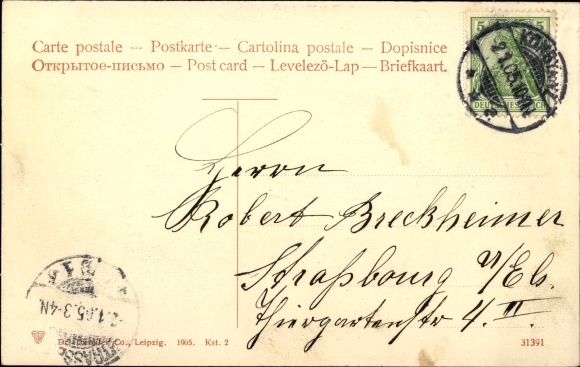 Carte postale – Postkarte – Cartolina postale – Dopisnice
Открытое-письмо – Post card – Levelezö-Lap – Briefkaart.
5 5
DEUTSCHES REICH
Herrn
Robert Breckheimer
Straßbourg i/Els.
Thiergartenstr 4. III.
1.05.3-4N.
Co., Leipzig. 1905. Kst. 2
31391